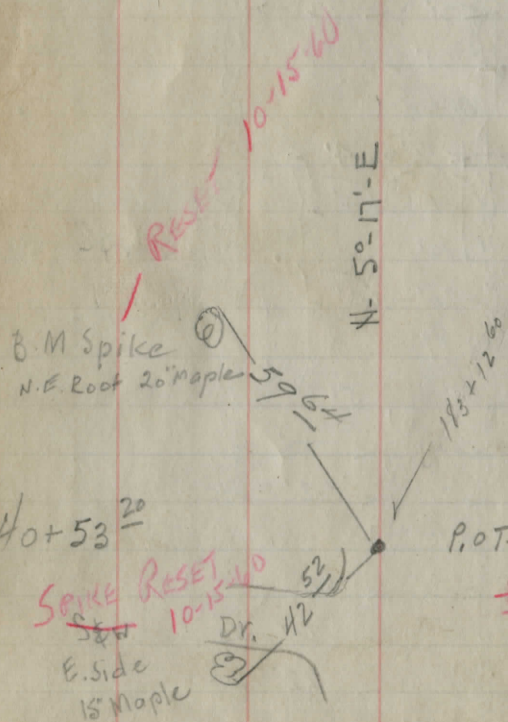 RESET 10-15-60
N-5°-17'-E
B.M Spike
N.E. Root 20" Maple
59 64
183+12 60
40+53 20
P.O.T.
SPIKE RESET
10-15-60
52
42
Dr.
S&N
E. Side
15" Maple